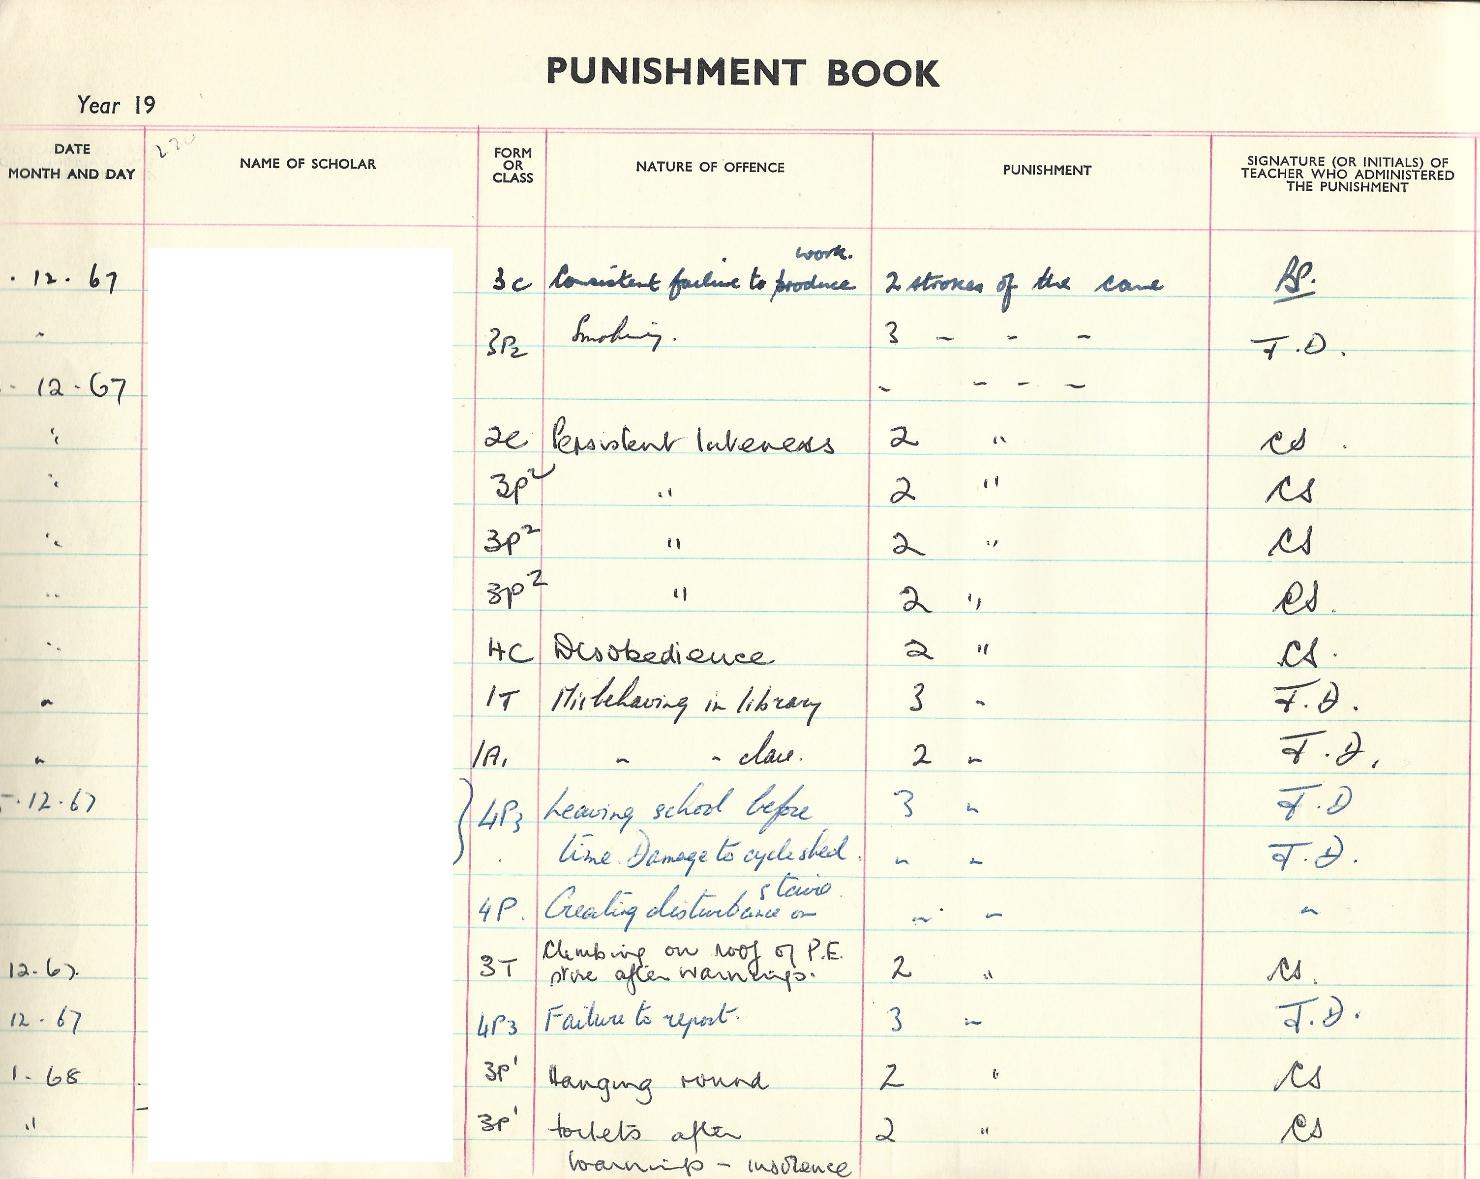 PUNISHMENT BOOK
Year 19
DATE MONTH AND DAY NAME OF SCHOLAR FORM OR CLASS NATURE OF OFFENCE PUNISHMENT SIGNATURE (OR INITIALS) OF TEACHER WHO ADMINISTERED THE PUNISHMENT
work.
. 12. 67 3c Consistent failure to produce 2 strokes of the cane
" 3P2 Smoking. 3 - - - F.D.
- 12-67 - - - -
" 2C Persistent lateness 2 " CS.
" 3P2 " 2 " CS
" 3P2 " 2 " CS
" 3P2 " 2 " CS.
" 4C Disobedience 2 " CS.
" 1T Misbehaving in library 3 " F.D.
" 1A. " " class. 2 " F.D.
.12.67 4P3 Leaving school before 3 " F.D
time. Damage to cycle shed. " " F.D.
stairs.
4P. Creating disturbance on " " "
Climbing on roof of P.E.
12.67. 3T store after warnings. 2 " CS.
12.67 4P3 Failure to report. 3 " F.D.
1. 68 3P1 Hanging round 2 " CS
" 3P1 toilets after 2 " CS
warnings - insolence